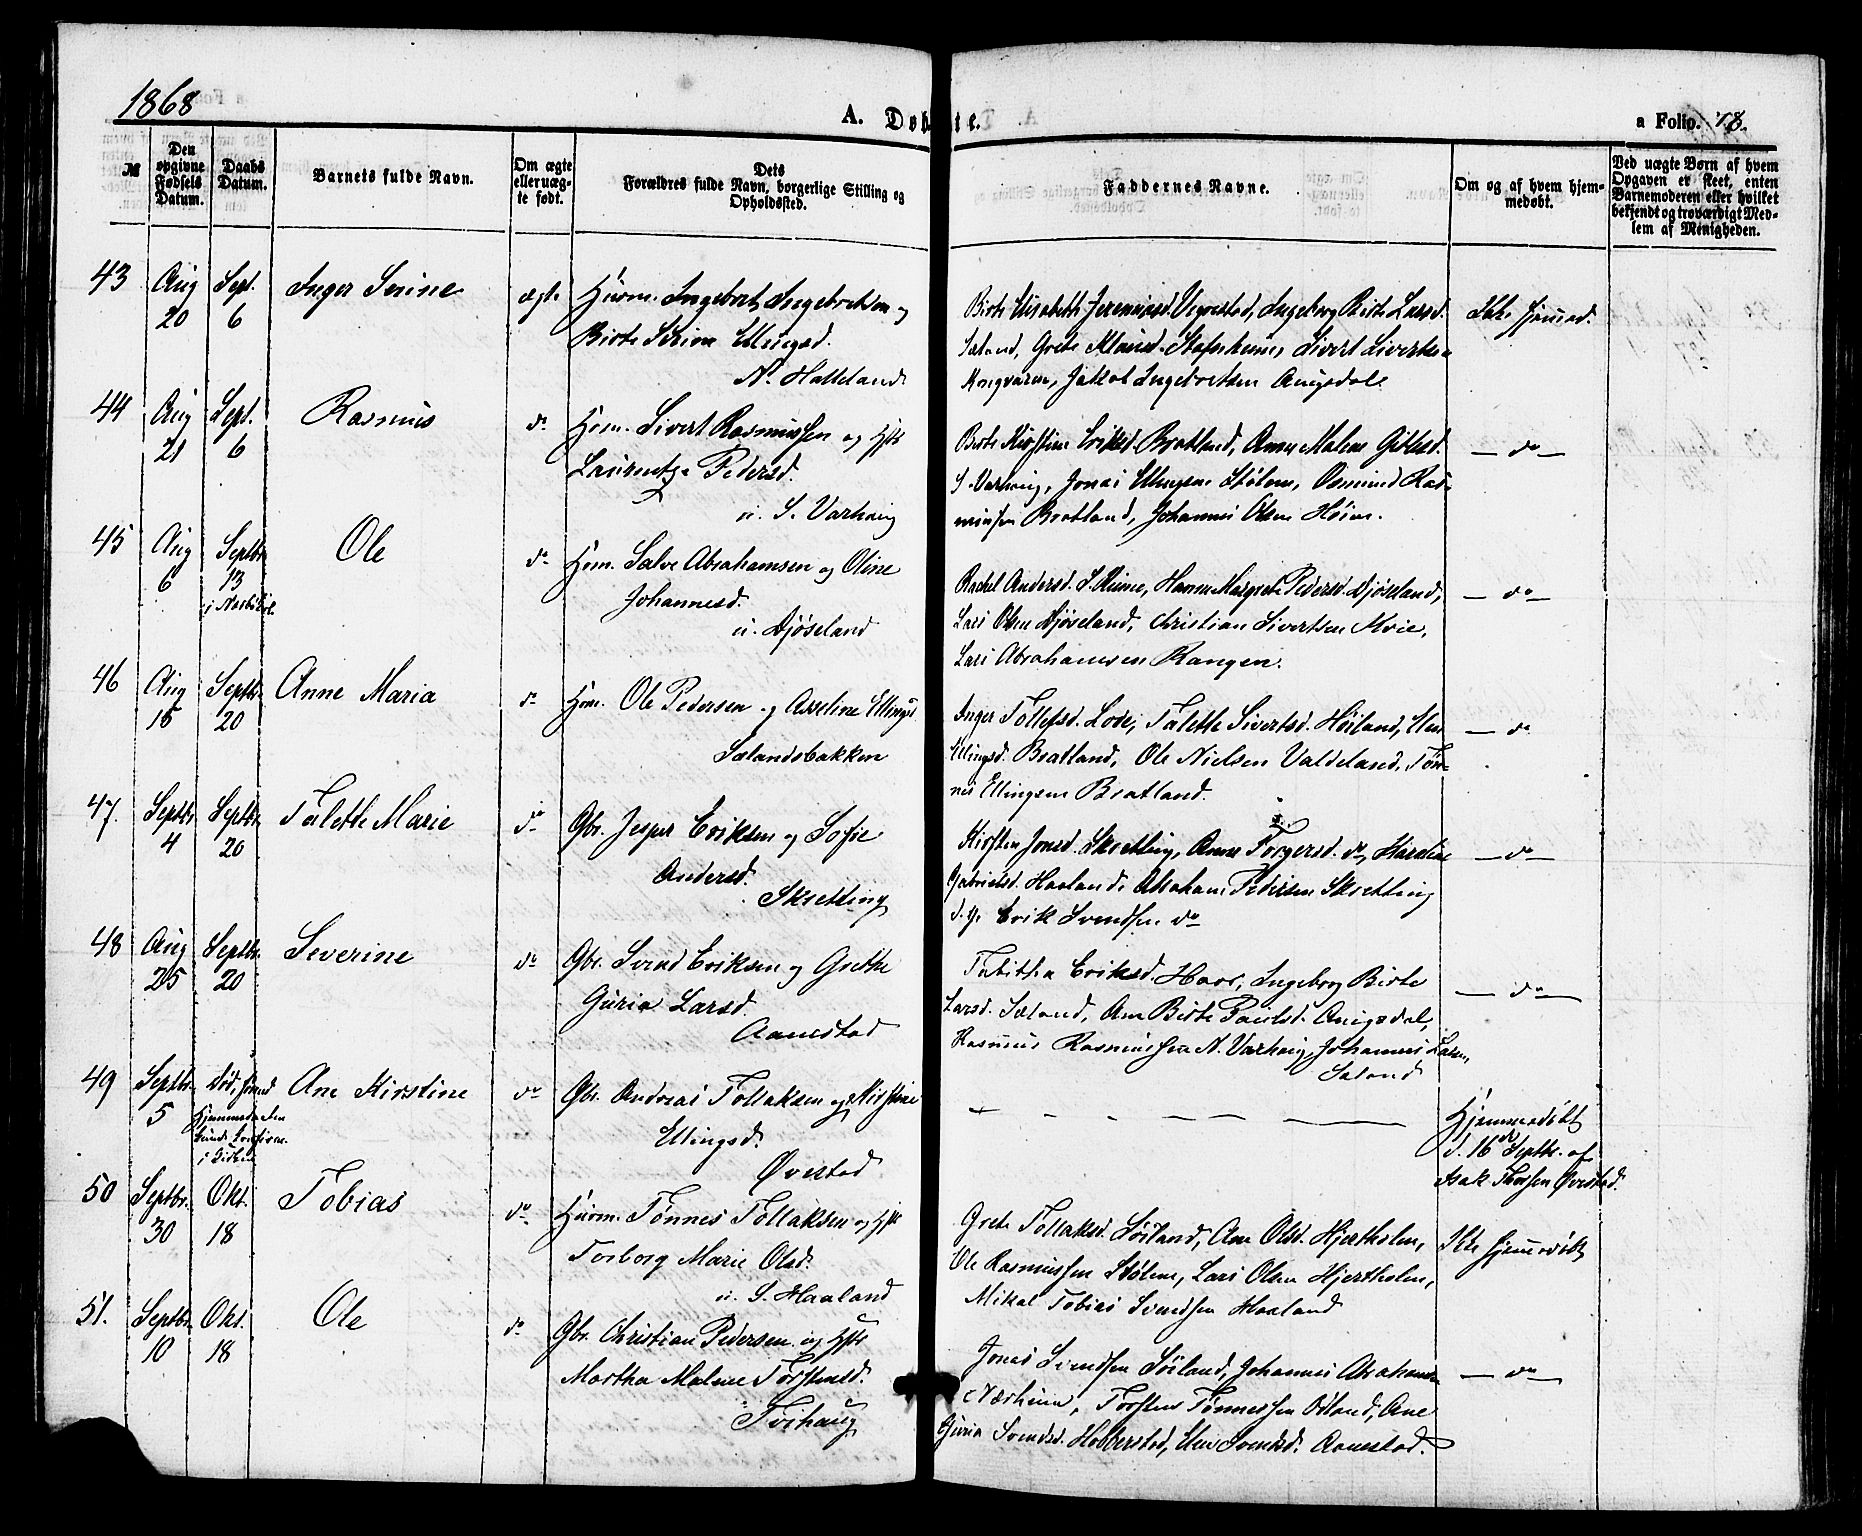 1868
A. Døbte.
a Folio. 78.
№
Den opgivne Fødsels Datum.
Daabs Datum.
Barnets fulde Navn.
Om ægte eller uægte født.
Dets Forældres fulde Navn, borgerlige Stilling og Opholdssted.
Faddernes Navne.
Om og af hvem hjemmedøbt.
Ved uægte Børn af hvem Opgaven er skeet, enten Barnemoderen eller hvilket bekjendt og troværdigt Medlem af Menigheden.
43 Aug 20 Sept. 6 Inger Serine ægte
Huusm. Ingebret Ingebretsen og
Birte Serine Ellingsd.
N. Haaland
Birte Elisabeth Jeremiasd. Vigrestad, Ingeborg Birte Larsd.
Sæland, Grete Klausd. Stafnheim, Sivert Sivertsen
Kongvarn, Jakob Ingebretsen Auigsdal
Ikke hjemmed.
44 Aug 21 Sept. 6 Rasmus do
Huusm. Sivert Rasmussen og Hst
Laurentze Pedersd.
u. S. Varhaug
Birte Kirstine Eriksd. Bratland, Anne Malene
S. Varhaug, Jonas Ellingsen Stølene, Osmund Ras-
mussen Bratland, Johannes Olsen Høine.
— do —
45 Aug 6 Septbr. 13 i Nærbø Ole do
Huusm. Salve Abrahamsen og Oline
Johannesd.
u. Djøseland
Rachel Andersd. S. Reime, Hanne Margrete Pedersd. Djøseland,
Lars Olsen Djøseland, Christian Sivertsen Moie,
Lars Abrahamsen Rangen.
— do —
46 Aug 15 Septbr. 20 Anne Maria do
Huusm. Ole Pedersen og Asseline Ellingsd
Sælandsbakken
Inger Tollefsd. Lode, Talette Sivertsd. Høiland, Elen
Ellingsd. Bratland, Ole Nielsen Valdeland, Tøn-
nes Ellingsen Bratland.
— do
47. Septbr. 4 Septbr. 20 Talette Marie do
Gbr. Jesper Eriksen og Sofie
Andersd.
Skretting
Kirsten Jonsd. Skretting, Anne Torgersd. do, Karoline
Gabrielsd. Haaland, Abraham Pedersen Skretting
d. y. Erik Svendsen do
— do —
48 Aug 25 Septbr. 20 Severine do
Gbr. Svend Eriksen og Grethe
Guria Larsd.
Aanestad
Tabitha Eriksd. Haar, Ingeborg Birte
Larsd. Sæland, Ane Birte Paulsd. Auigsdal,
Rasmus Rasmussen N. Varhaug, Johannes Larsen,
Sæland
— do —
49 Septbr. 5 Ane Kirstine do
Gbr. Andreas Tollaksen og Kirstine
Ellingsd.
Øvestad
— — — — —
Hjemmedøbt
d. 16de Septbr. af
Isak Øvestad.
50 Septbr. 30 Okt. 18 Tobias do
Huusm. Tønnes Tollaksen og Hst
Torborg Marie Olsd.
u. S. Haaland
Grete Tollaksd. Søiland, Ane Olsd. Hjertholm,
Ole Rasmussen Stølene, Lars Olsen Hjertholm,
Mikal Tobias Svendsen Haaland
Ikke hjemmedøbt
51. Septbr. 10 Okt. 18 Ole do
Gbr. Christian Pedersen og Hst
Martha Malene Torstensd.
Tvihaug
Jonas Svendsen Søiland, Johannes Abrahamsen
Nærheim, Torsten Tønnessen Odland, Ane
Guria Svendsd. Hobberstad, Svendsd. Aanestad.
— do —